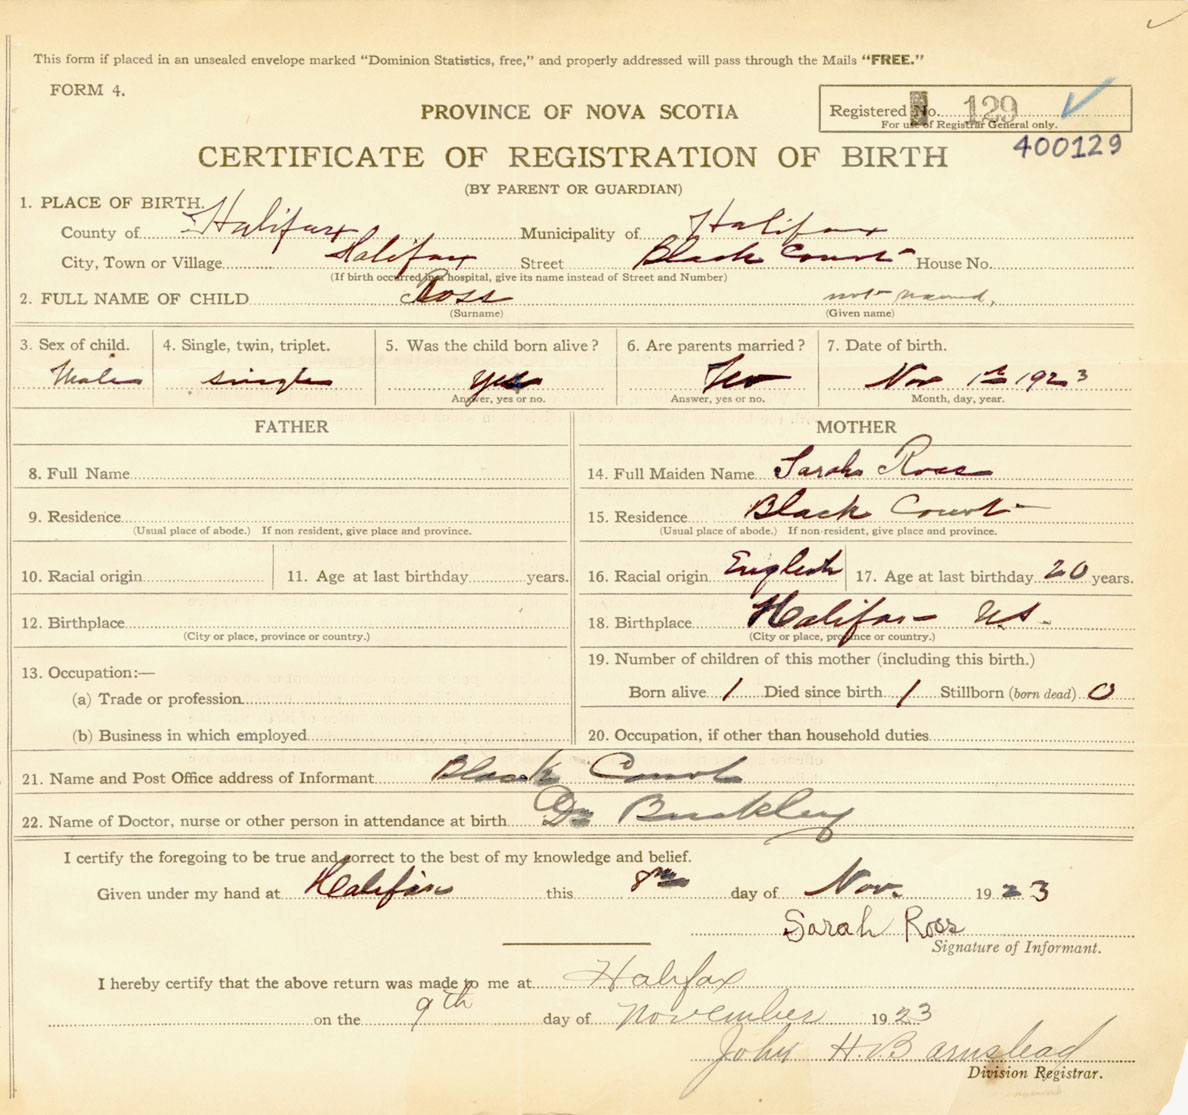 This form if placed in an unsealed envelope marked "Dominion Statistics, free," and properly addressed will pass through the Mails "FREE."
FORM 4.
PROVINCE OF NOVA SCOTIA
Registered No. 129
For use of Registrar General only.
400129
CERTIFICATE OF REGISTRATION OF BIRTH
(BY PARENT OR GUARDIAN)
1. PLACE OF BIRTH.
County of Halifax Municipality of Halifax
City, Town or Village Halifax Street Black Court House No.
(If birth occurred in a hospital, give its name instead of Street and Number)
2. FULL NAME OF CHILD Ross not named.
(Surname) (Given name)
3. Sex of child. 4. Single, twin, triplet. 5. Was the child born alive? 6. Are parents married? 7. Date of birth.
Male single yes No Nov 1st 1923
Answer, yes or no. Answer, yes or no. Month, day, year.
FATHER MOTHER
8. Full Name 14. Full Maiden Name Sarah Ross
9. Residence 15. Residence Black Court
(Usual place of abode.) If non-resident, give place and province. (Usual place of abode.) If non-resident, give place and province.
10. Racial origin 11. Age at last birthday years. 16. Racial origin English 17. Age at last birthday 20 years.
12. Birthplace 18. Birthplace Halifax N.S.
(City or place, province or country.) (City or place, province or country.)
13. Occupation:— 19. Number of children of this mother (including this birth.)
(a) Trade or profession Born alive 1 Died since birth 1 Stillborn (born dead) 0
(b) Business in which employed 20. Occupation, if other than household duties
21. Name and Post Office address of Informant Black Court
22. Name of Doctor, nurse or other person in attendance at birth Dr Buckley
I certify the foregoing to be true and correct to the best of my knowledge and belief.
Given under my hand at Halifax this 8th day of Nov. 1923
Sarah Ross
Signature of Informant.
I hereby certify that the above return was made to me at Halifax
on the 9th day of November 1923
John H. Barnstead
Division Registrar.